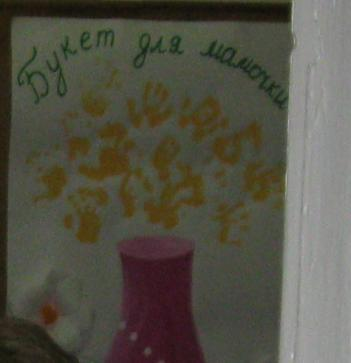 Букет для мамочки